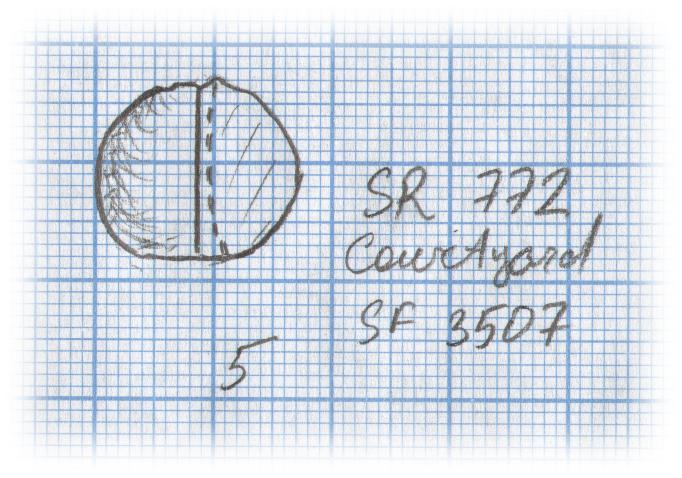 SR 772
Courtyard
SF 3507
5